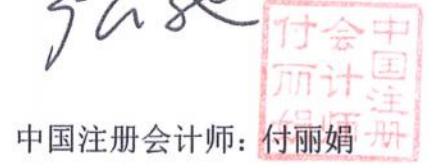 中国注册
会计师
付丽娟
中国注册会计师：付丽娟